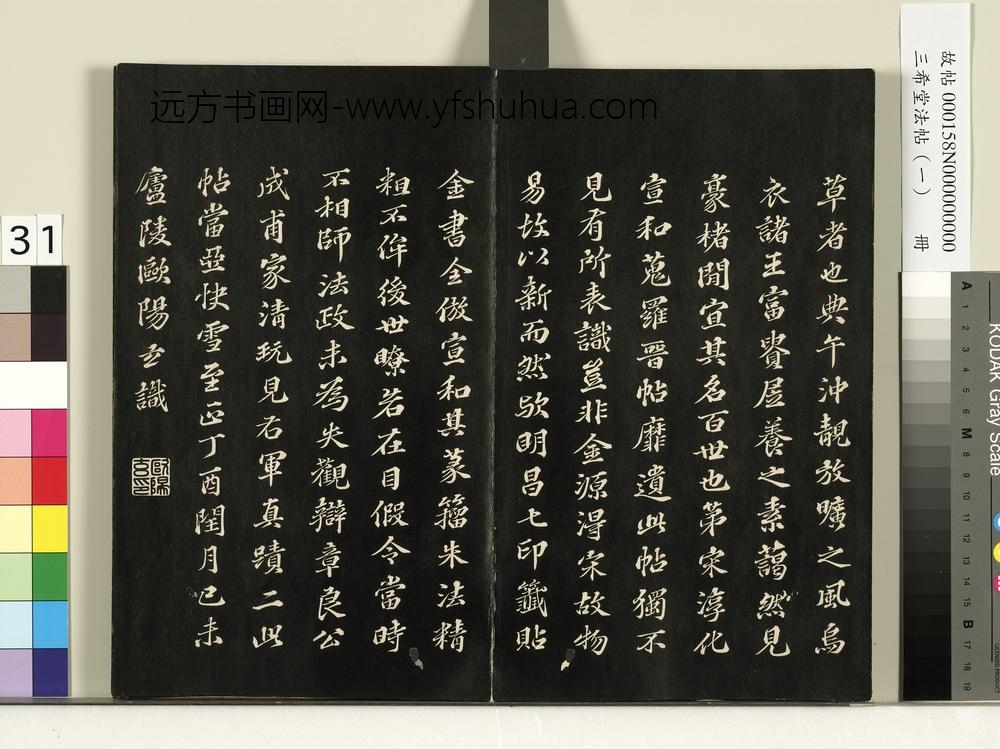 远方书画网-www.yfshuhua.com
草者也典午沖靚放曠之風烏
衣諸王富貴居養之素藹然見
豪楮間宣其名百世也第宋淳化
宣和蒐羅晉帖靡遺此帖獨不
見有所表識豈非金源得宋故物
易故以新而然歟明昌七印籤貼
金書全倣宣和其篆籀朱法精
粗不侔後世瞭若在目假令當時
不相師法政未為失觀辯章良公
成甫家清玩見右軍真蹟二此
帖當並快雪至正丁酉閏月己未
廬陵歐陽玄識
歐陽玄印
故帖 000158N000000000
三希堂法帖（一） 冊
31
KODAK Gray Scale
A 1 2 3 4 5 6 M 8 9 10 11 12 13 14 15 B 17 18 19